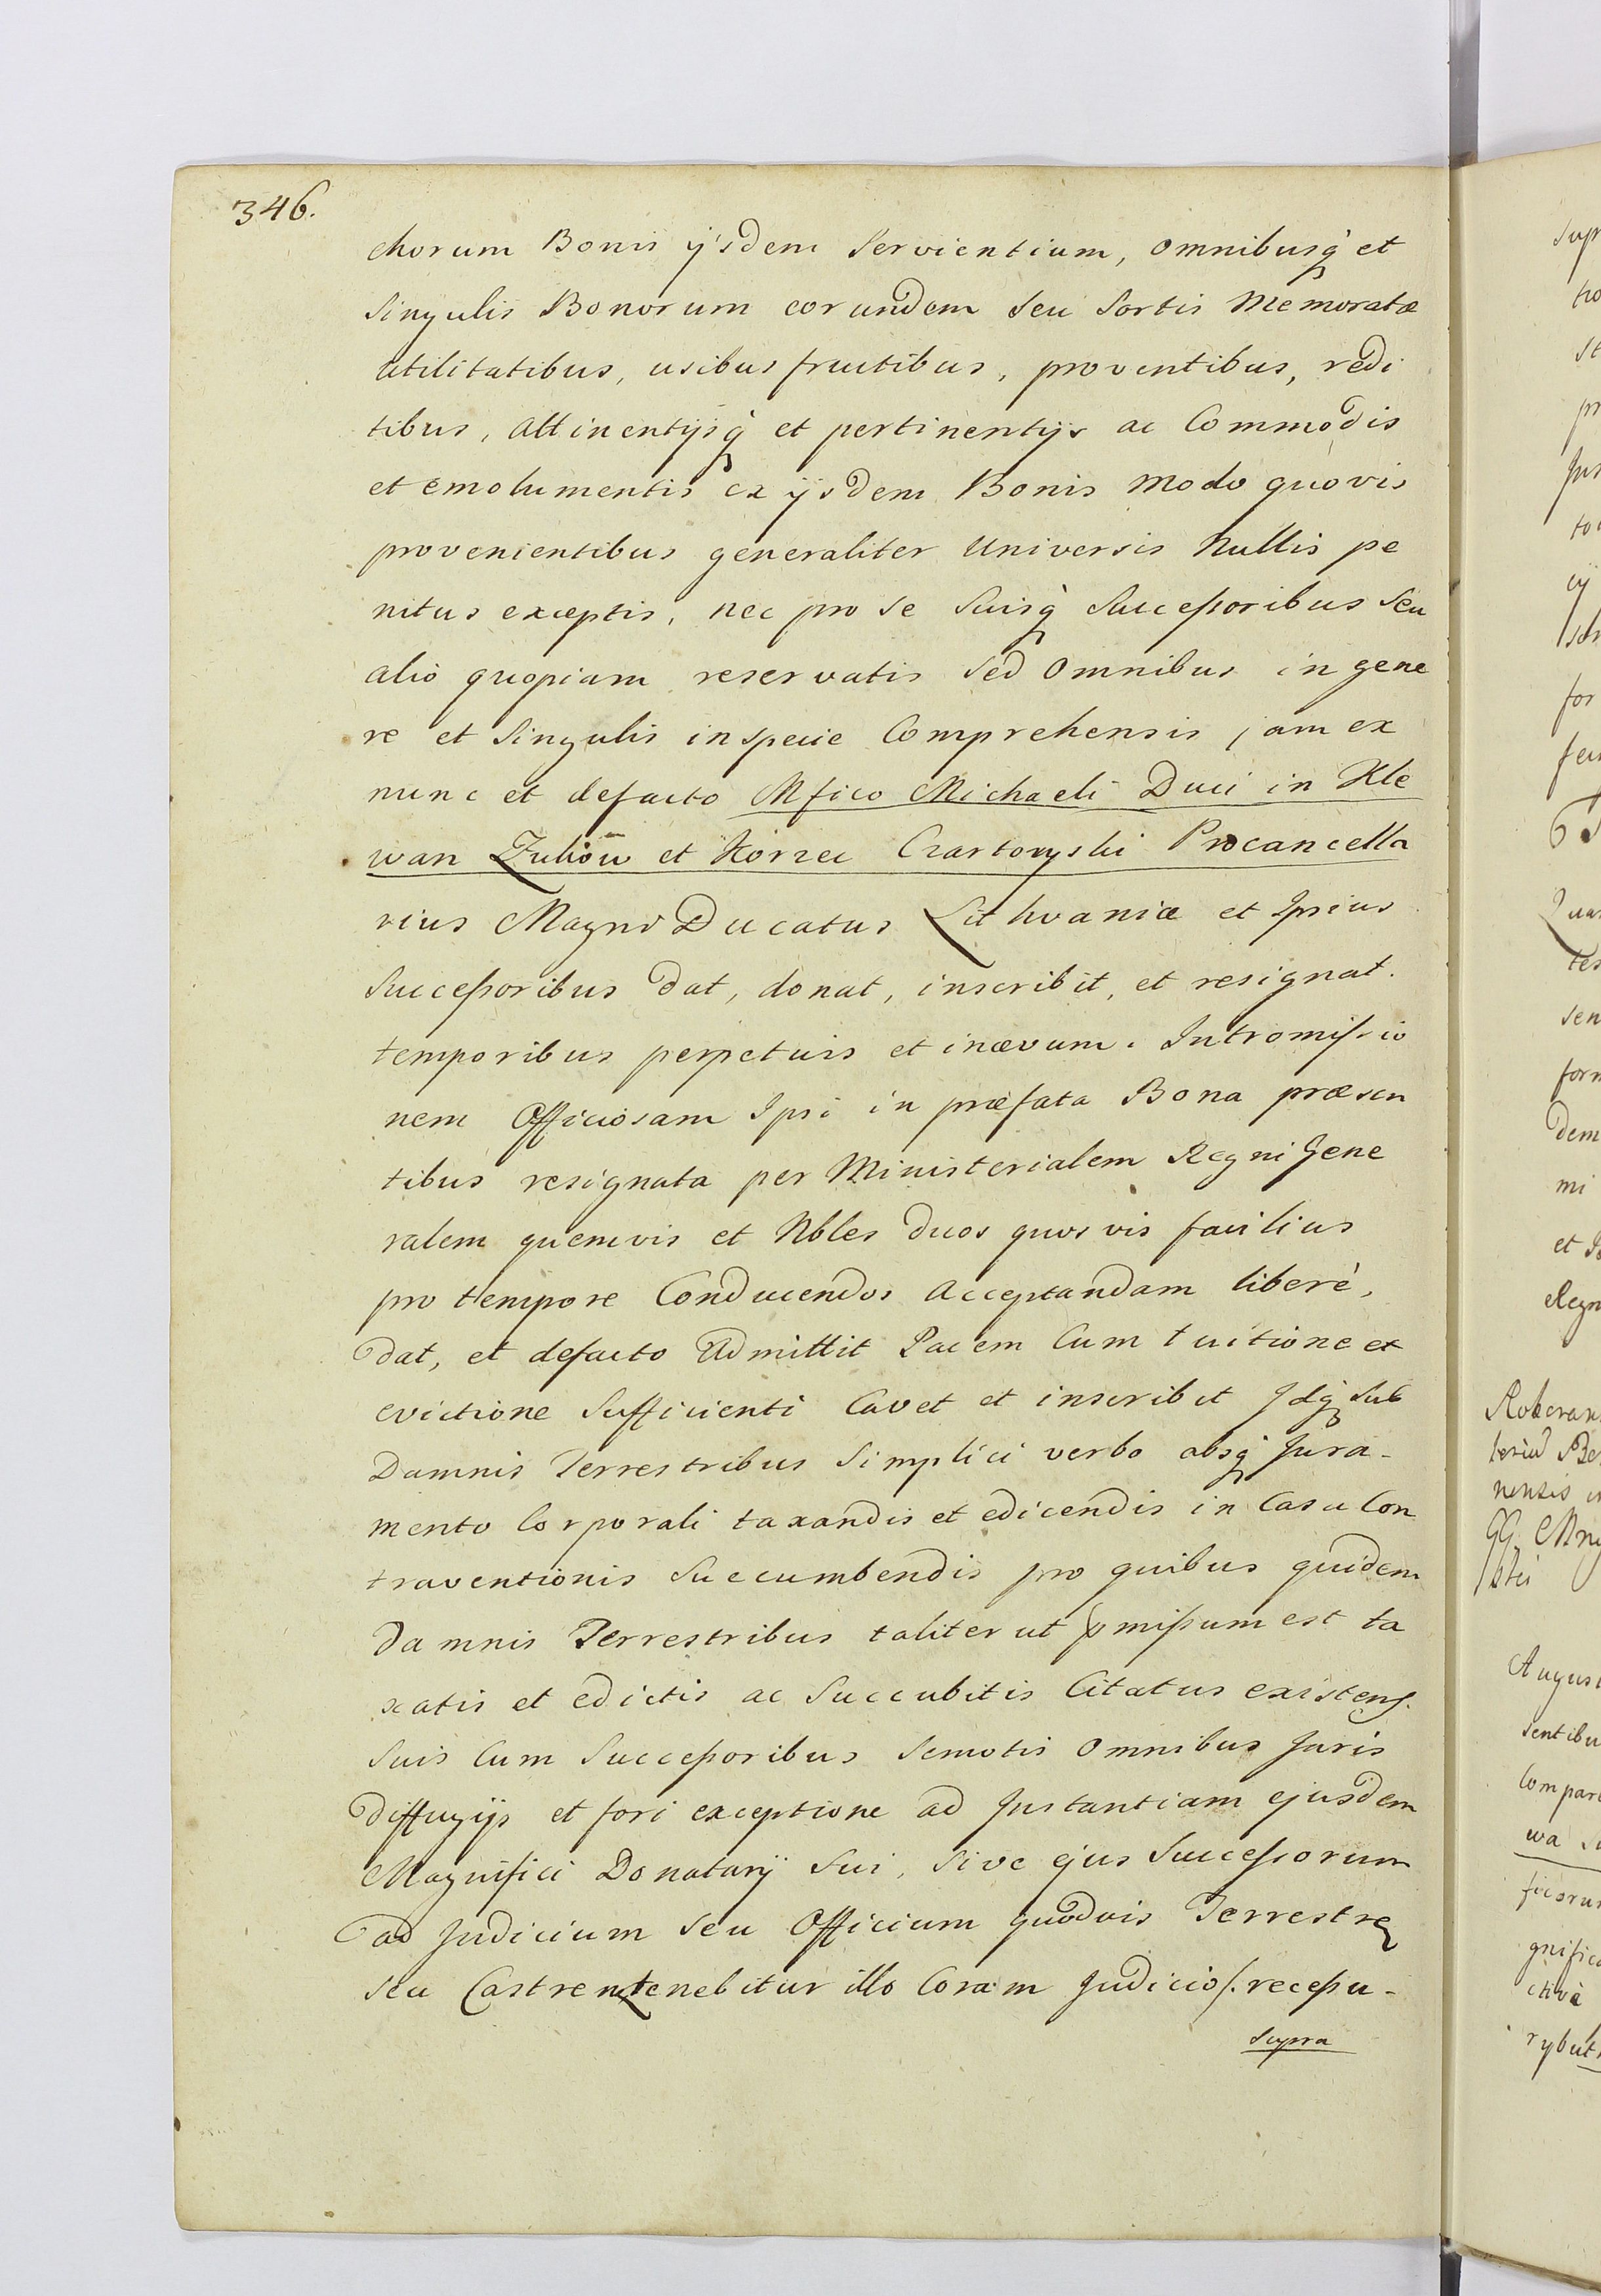 346.
chorum Bonis ijsdem Servientium, omnibusq̀ et
Singulis Bonorum eorundem seu Sortis Memoratæ
utilitatibus, usibusfructibus, proventibus, redi
tibus, attinentijsq̀ et pertinentijs ac Commodis
et emolumentis ex ijsdem Bonis Modo quovis
provenientibus generaliter Universis Nullis pe
nitus exceptis, nec pro se Suisq̀ Succeſsoribus seu
alio quopiam reservatis sed omnibus in gene
re et Singulis inspecie Comprehensis jam ex
nunc et defacto Mfico Michaeli Duci in Kle
wan Zukow et Korzec Czartoryski Procancella
rius Magni Ducatus Lithvaniæ et Ipsius
Succeſsoribus dat, donat, inscribit, et resignat.
temporibus perpetuis et inævum. Intromiſsio
nem Officiosam Ipsi in præfata Bona præsen
tibus resignata per Ministerialem Regni Gene
ralem quemvis et Nbles duos quosvis facilius
pro tempore Conducendos acceptandam liberè,
dat, et defacto Admittit Pacem Cum tuitione et
evictione Sufficienti Cavet et inscribit Idq̀ sub
Damnis Terrestribus Simplici verbo absq̀ Jura-
mento Corporali taxandis et edicendis in Casu Con
traventionis Succumbendis pro quibus quidem
Damnis Terrestribus taliter ut pmiſsum est ta
xatis et edictis ac Succubitis Citatus existens.
Suis Cum Succeſsoribus Semotis omnibus Juris
diffugijs et fori exceptione ad Instantiam ejusdem
Magnifici Donatarij Sui, Sive ejus Succeſsorum
ad Judicium seu Officium quodvis Terrestre
seu Castren tenebitur illo Coram Judicio/: recepu-
supra